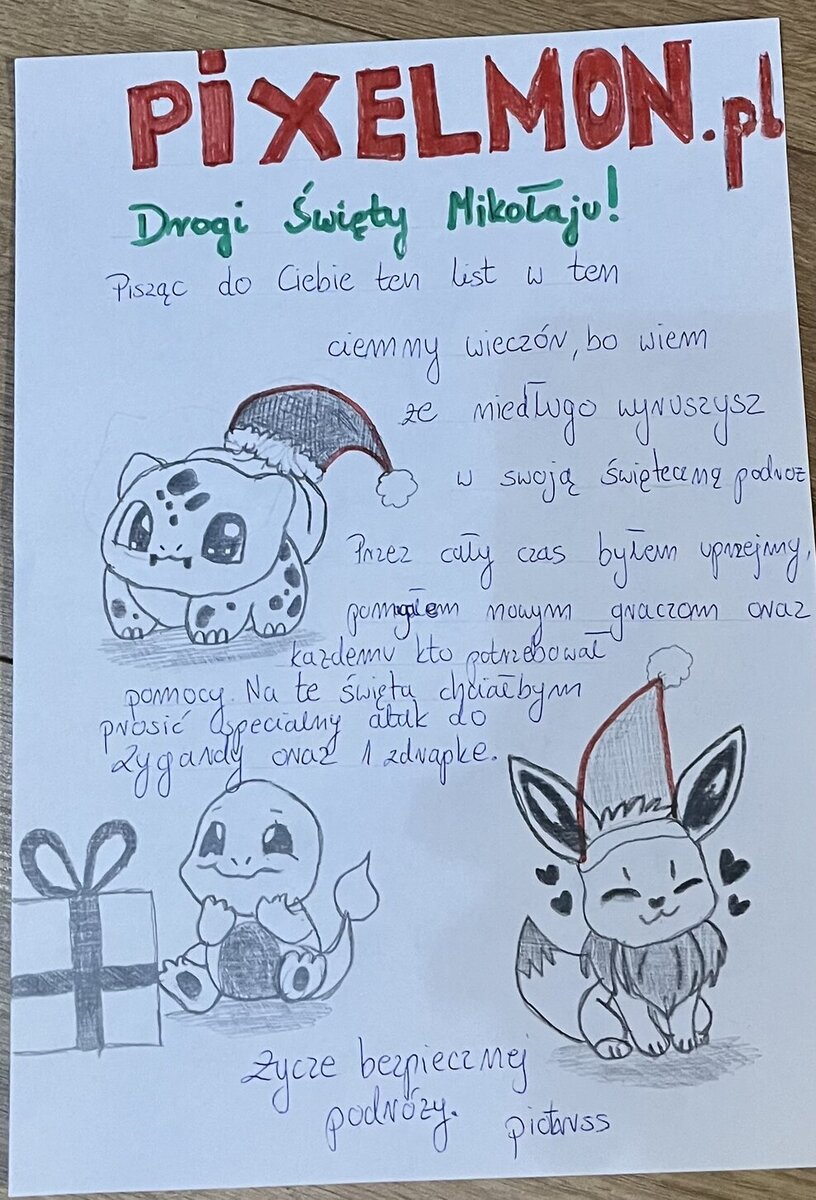 PiXELMON.pl
Drogi Święty Mikołaju!
Pisząc do Ciebie ten list w ten
ciemny wieczór, bo wiem
że niedługo wyruszysz
w swoją świąteczną podróż
Przez cały czas byłem uprzejmy,
pomogłem nowym graczom oraz
każdemu kto potrzebował
pomocy. Na te święta chciałbym
prosić specialny atak do
Zygardy oraz 1 zdrapkę.
Życzę bezpiecznej
podróży.
piotruss